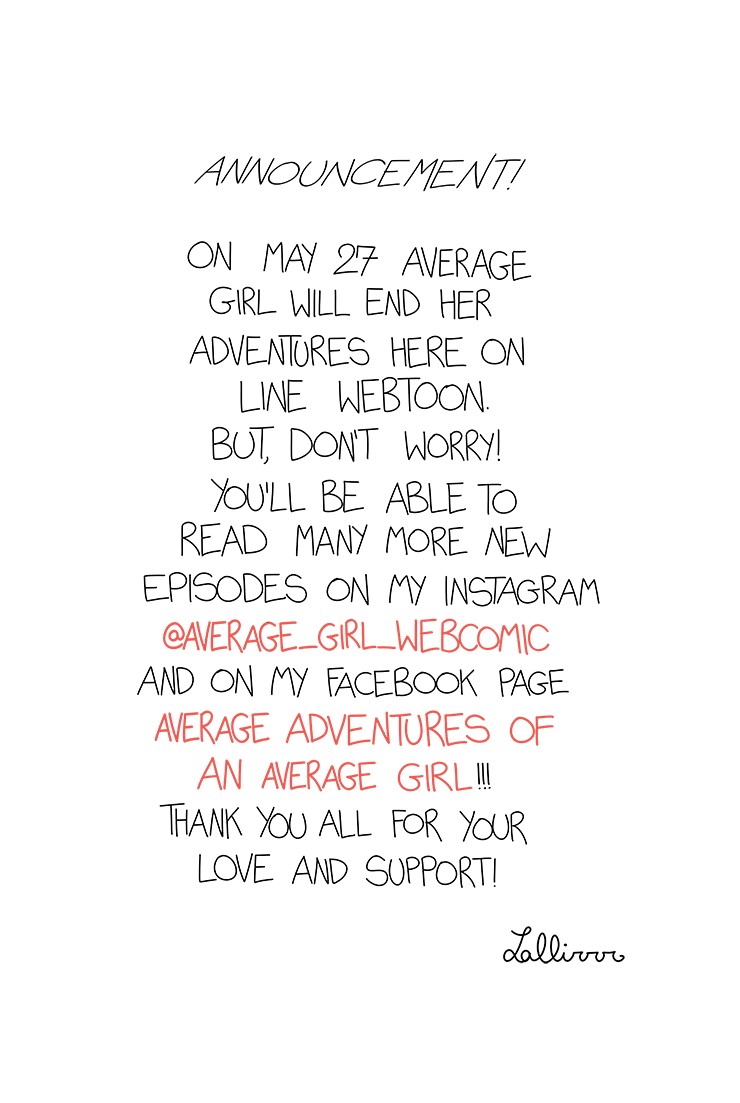 ANNOUNCEMENT!
ON MAY 27 AVERAGE
GIRL WILL END HER
ADVENTURES HERE ON
LINE WEBTOON.
BUT, DON'T WORRY!
YOU'LL BE ABLE TO
READ MANY MORE NEW
EPISODES ON MY INSTAGRAM
@AVERAGE_GIRL_WEBCOMIC
AND ON MY FACEBOOK PAGE
AVERAGE ADVENTURES OF
AN AVERAGE GIRL!!!
THANK YOU ALL FOR YOUR
LOVE AND SUPPORT!
Lallirrr